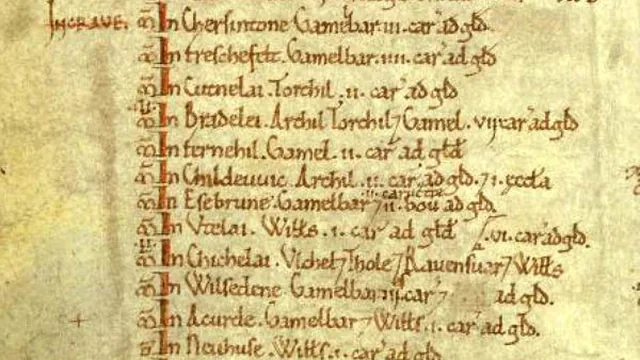 IN CRAVE.
ᵯ In Chersintone Gamelbar. iii. car' ad gld.
ᵯ In treschefelt. Gamelbar. iiii. car' ad gld
ᵯ In Cutnelai. Torchil. ii. car' ad gld
ᵯ In Bradelei. Archil Torchil ⁊ Gamel. vii car' ad gld
ᵯ In ternehil. Gamel. ii. car' ad gld
ᵯ In Childeuuic. Archil. ii. car' ad gld. ⁊ i. ęccła
ᵯ In Esebrune. Gamelbar ii. carucatę ⁊ ii. bou' ad gld.
ᵯ In Vtelai. Wills. i. car' ad gld
vi. car' ad gld.
ᵯ In Chichelai. Vlchel ⁊ Thole ⁊ Rauensuar ⁊ Wills
ᵯ In Wilsedene. Gamelbar iii car' ⁊ ad gld.
ᵯ In Acurde. Gamelbar ⁊ Wills. i. car' ad gld.
ᵯ In Neuhuse. Wills. i. car' ad gld